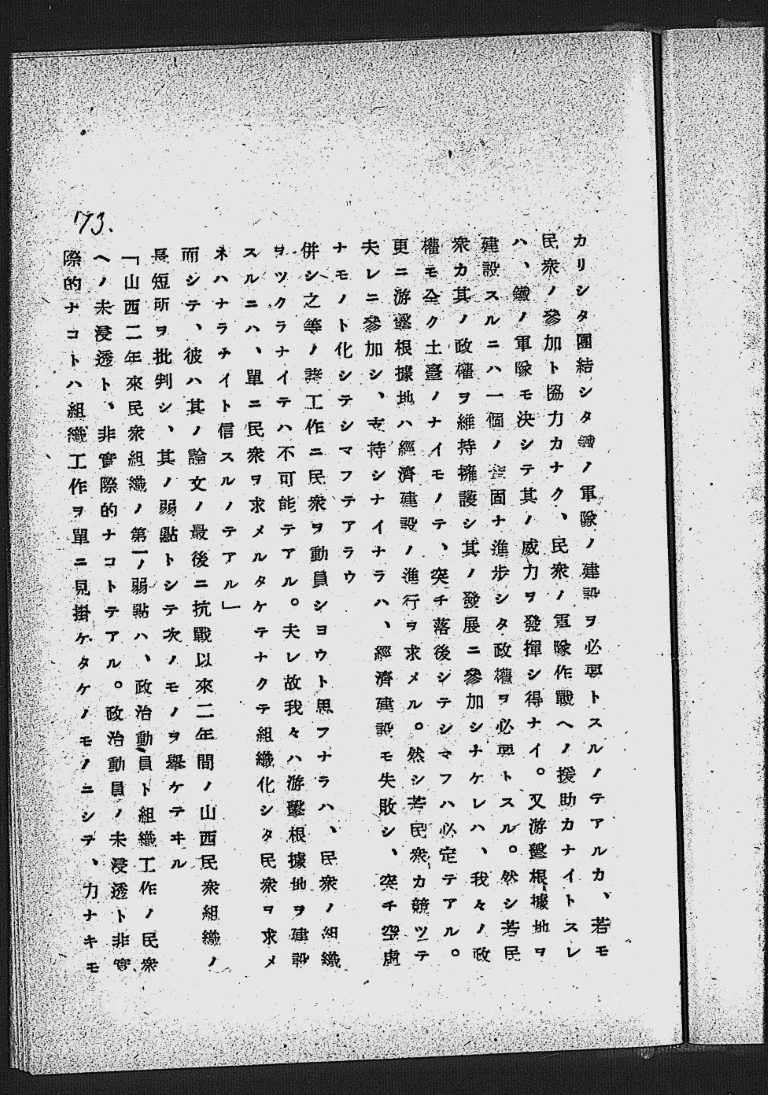 カリシタ團結シタ鐵ノ軍隊ノ建設ヲ必要トスルノテアルカ、若モ
民衆ノ參加ト協力カナク、民衆ノ軍隊作戰ヘノ援助カナイトスレ
ハ、鐵ノ軍隊モ決シテ其ノ威力ヲ發揮シ得ナイ。又游擊根據地ヲ
建設スルニハ一個ノ堅固ナ進步シタ政權ヲ必要トスル。然シ若民
衆カ其ノ政權ヲ維持擁護シ其ノ發展ニ參加シナケレハ、我々ノ政
權モ全ク土臺ノナイモノテ、突チ落後シテシマフハ必定テアル。
更ニ游擊根據地ハ經濟建設ノ進行ヲ求メル。然シ若民衆カ競ツテ
夫レニ參加シ、支持シナイナラハ、經濟建設モ失敗シ、突チ空虛
ナモノト化シテシマフテアラウ
併シ之等ノ諸工作ニ民衆ヲ動員シヨウト思フナラハ、民衆ノ組織
ヲツクラナイテハ不可能テアル。夫レ故我々ハ游擊根據地ヲ建設
スルニハ、單ニ民衆ヲ求メルタケテナクテ組織化シタ民衆ヲ求メ
ネハナラナイト信スルノテアル」
而シテ、彼ハ其ノ論文ノ最後ニ抗戰以來二年間ノ山西民衆組織ノ
長短所ヲ批判シ、其ノ弱點トシテ次ノモノヲ擧ケテヰル
「山西二年來民衆組織ノ第一ノ弱點ハ、政治動員ト組織工作ノ民衆
ヘノ未浸透ト、非實際的ナコトテアル。政治動員ノ未浸透ト非實
際的ナコトハ組織工作ヲ單ニ見掛ケタケノモノニシテ、力ナキモ
73.